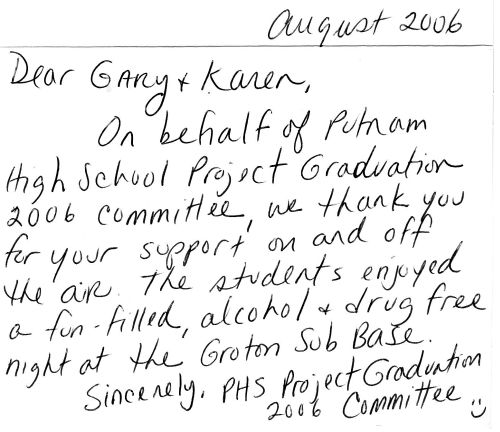 August 2006
Dear Gary & Karen,
On behalf of Putnam
High School Project Graduation
2006 committee, we thank you
for your support on and off
the air. The students enjoyed
a fun-filled, alcohol & drug free
night at the Groton Sub Base.
Sincerely, PHS Project Graduation
2006 Committee